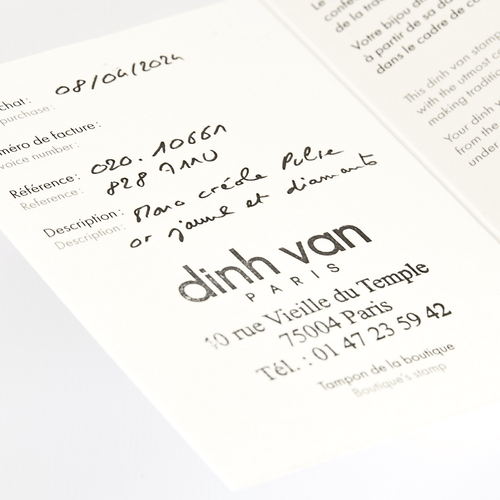 chat : 08/04/2024
purchase :
méro de facture :
voice number :
Référence : 020. 10661
Reference : 828
Description : Mono créole Pulse
Description : or jaune et diamants
dinh van
PARIS
10 rue Vieille du Temple
75004 Paris
Tél. : 01 47 23 59 42
Tampon de la boutique
Boutique's stamp
Le
confé
de la trad
Votre bijou di
à partir de sa da
dans le cadre de co
This dinh van stamp
with the utmost c
making traditio
Your dinh v
from the
under